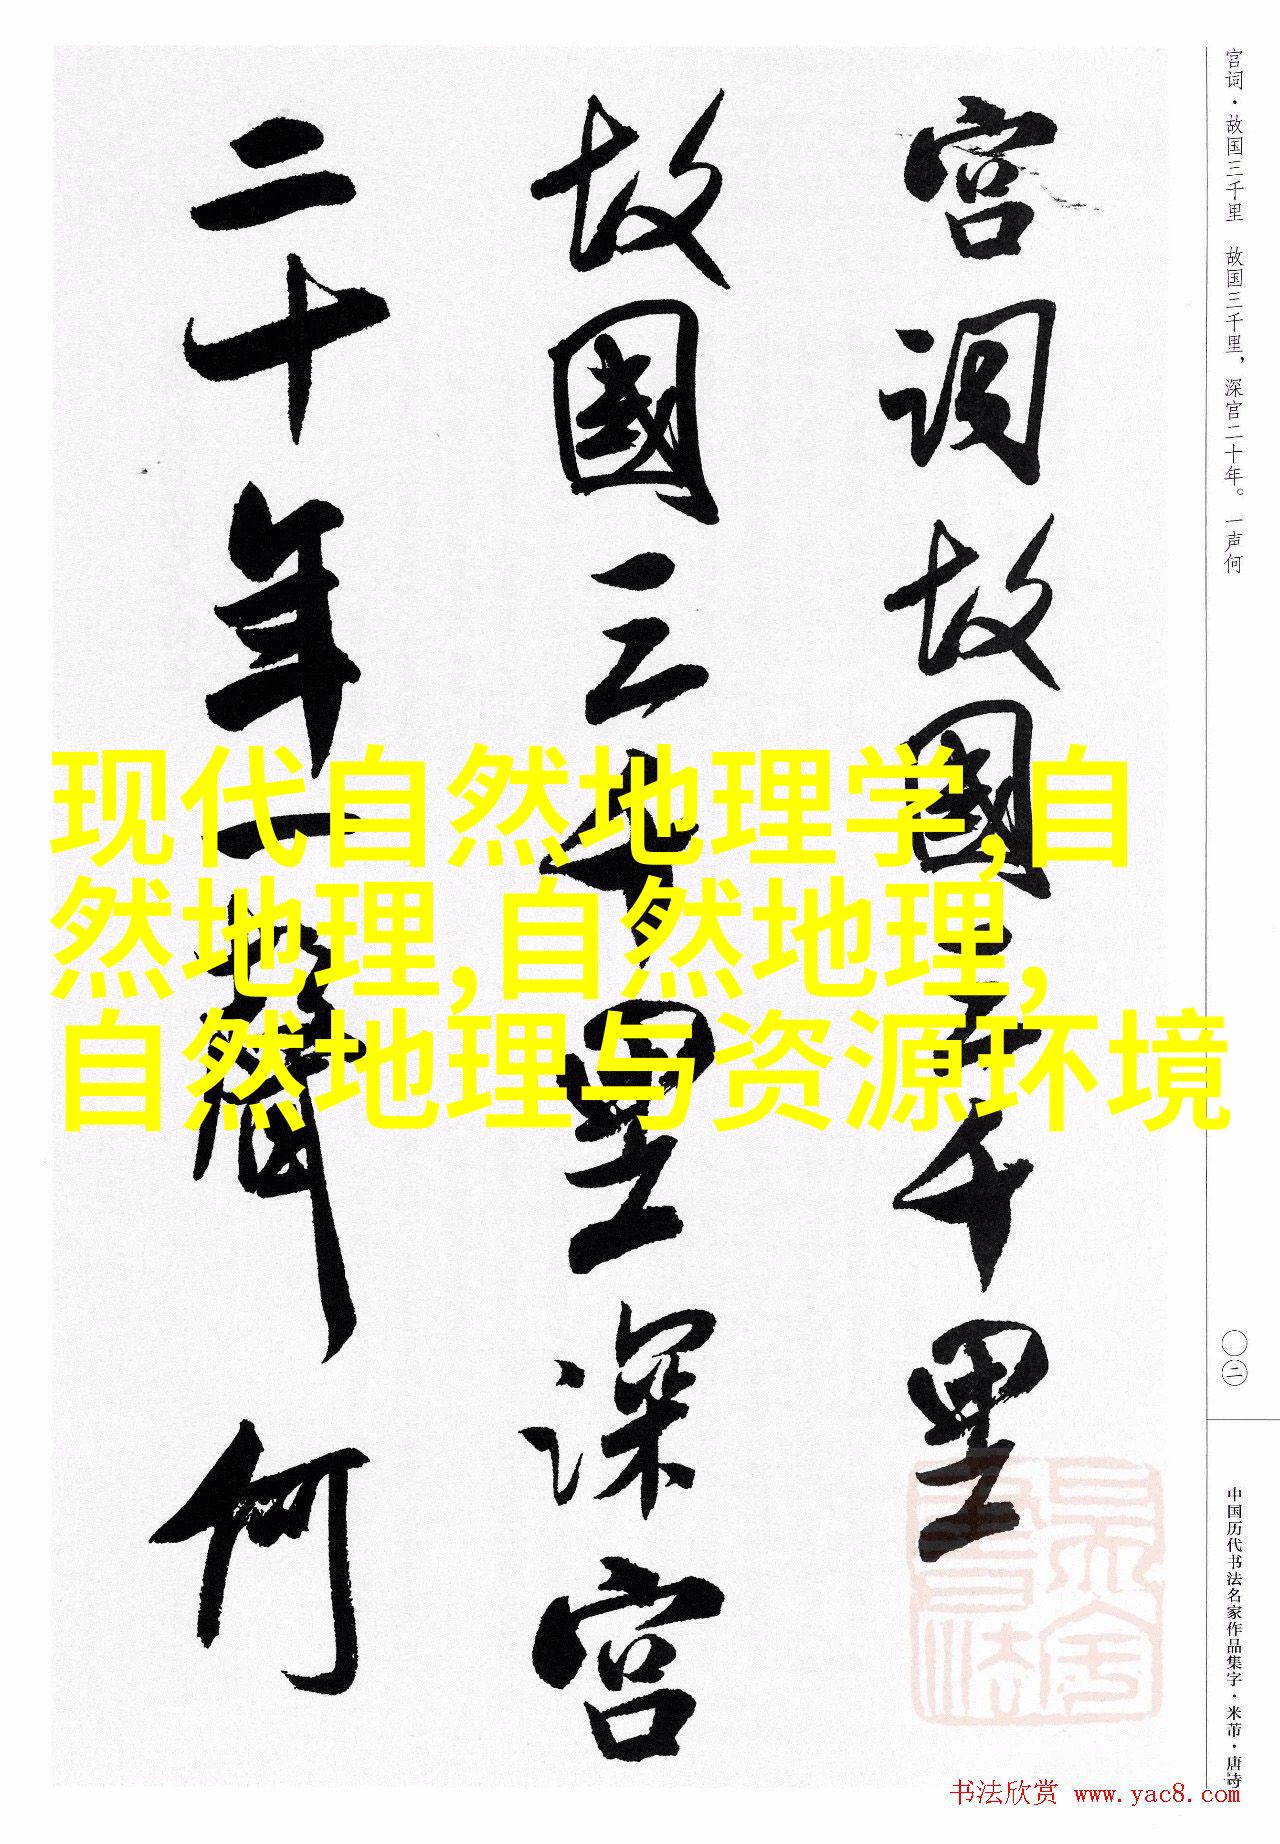 宫词·故国三千里 故国三千里，深宫二十年。一声何
宫词故國三千里
故國三千里深宫
二十年一聲何
现代自然地理学,自
然地理,自然地理,
自然地理与资源环境
〇二
中国历代书法名家作品集字·米芾·唐诗
书法欣赏 www.yac8.com